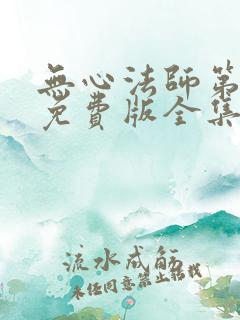 無心法師第
免費版全集
流水成觞
未经同意禁止转载